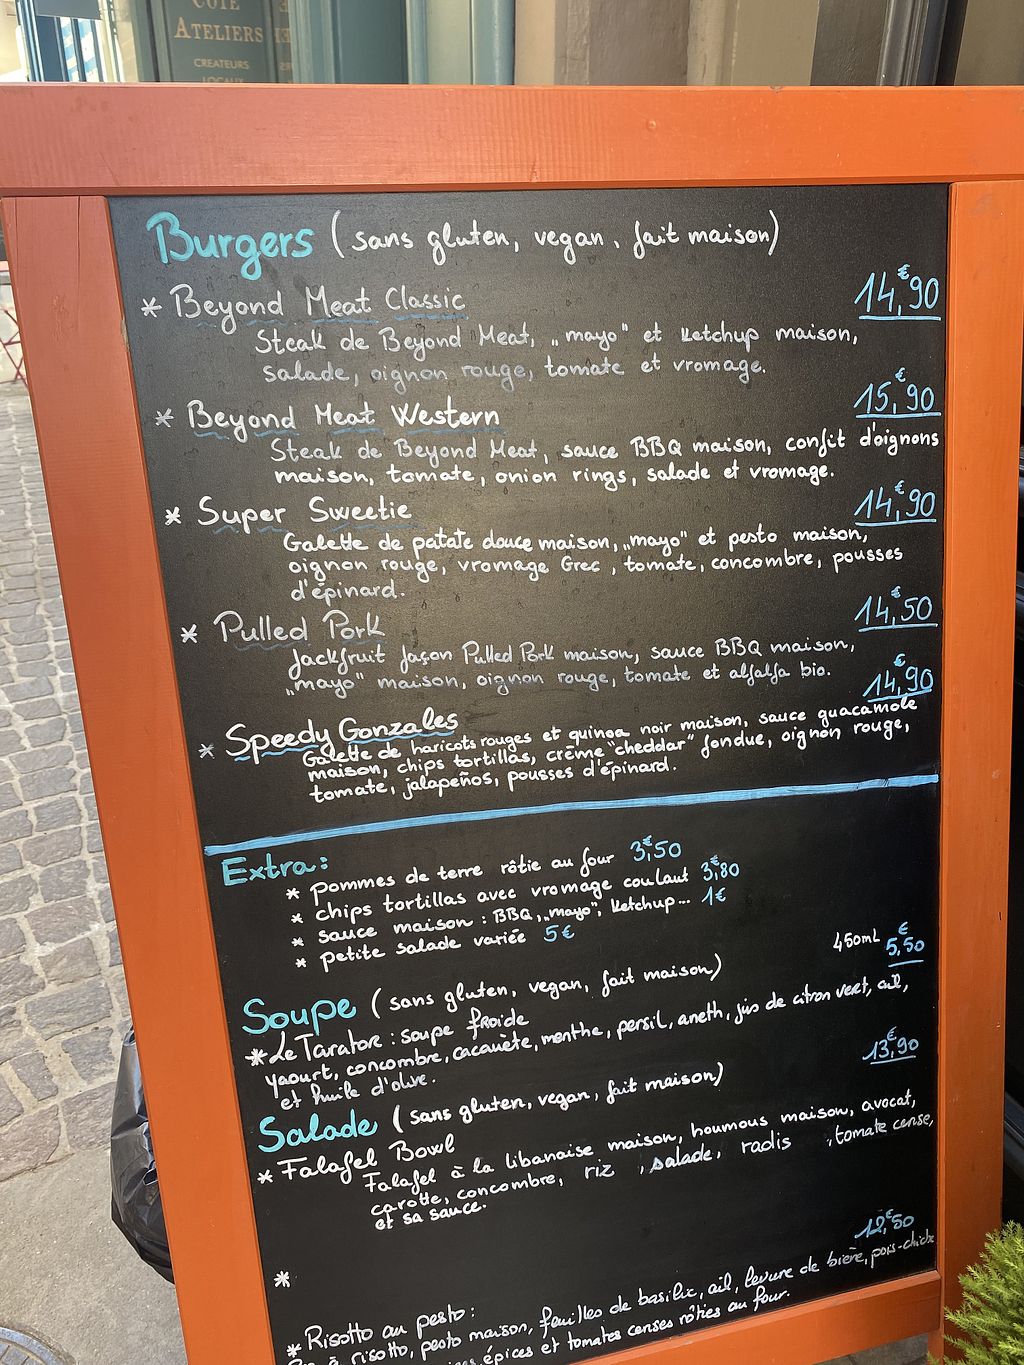 CÔTÉ
ATELIERS
CREATEURS
LOCAUX
Burgers (sans gluten, vegan, fait maison)
* Beyond Meat Classic 14,€90
Steak de Beyond Meat, „mayo" et ketchup maison,
salade, oignon rouge, tomate et vromage.
* Beyond Meat Western 15,€90
Steak de Beyond Meat, sauce BBQ maison, confit d'oignons
maison, tomate, onion rings, salade et vromage.
* Super Sweetie 14,€90
Galette de patate douce maison, „mayo" et pesto maison,
oignon rouge, vromage Grec, tomate, concombre, pousses
d'épinard.
* Pulled Pork 14,€50
Jackfruit façon Pulled Pork maison, sauce BBQ maison,
„mayo" maison, oignon rouge, tomate et alfalfa bio.
* Speedy Gonzales 14,€90
Galette de haricots rouges et quinoa noir maison, sauce guacamole
maison, chips tortillas, crème "cheddar" fondue, oignon rouge,
tomate, jalapeños, pousses d'épinard.
Extra:
* pommes de terre rôtie au four 3,€50
* chips tortillas avec vromage coulant 3,€80
* sauce maison : BBQ, „mayo", ketchup... 1€
* petite salade variée 5€
Soupe (sans gluten, vegan, fait maison) 450mL 5,€50
* Le Tarator : soupe froide
yaourt, concombre, cacauète, menthe, persil, aneth, jus de citron vert, ail,
et huile d'olive.
Salade (sans gluten, vegan, fait maison) 13,€90
* Falafel Bowl
Falafel à la libanaise maison, houmous maison, avocat,
carotte, concombre, riz, salade, radis, tomate cerise,
et sa sauce.
*
12,€50
* Risotto au pesto :
à risotto, pesto maison, feuilles de basilic, ail, levure de bière, pois-chiche
épices et tomates cerises rôties au four.